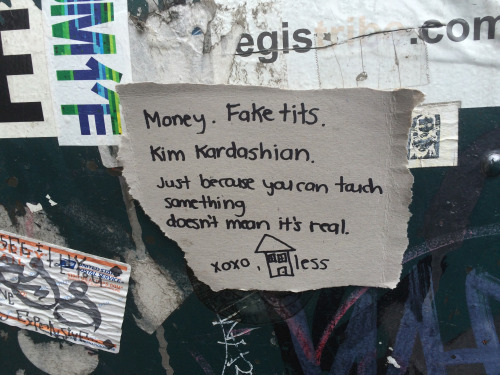 egis
.com
Money. Fake tits.
Kim Kardashian.
Just because you can touch
something
doesn't mean it's real.
xoxo, less